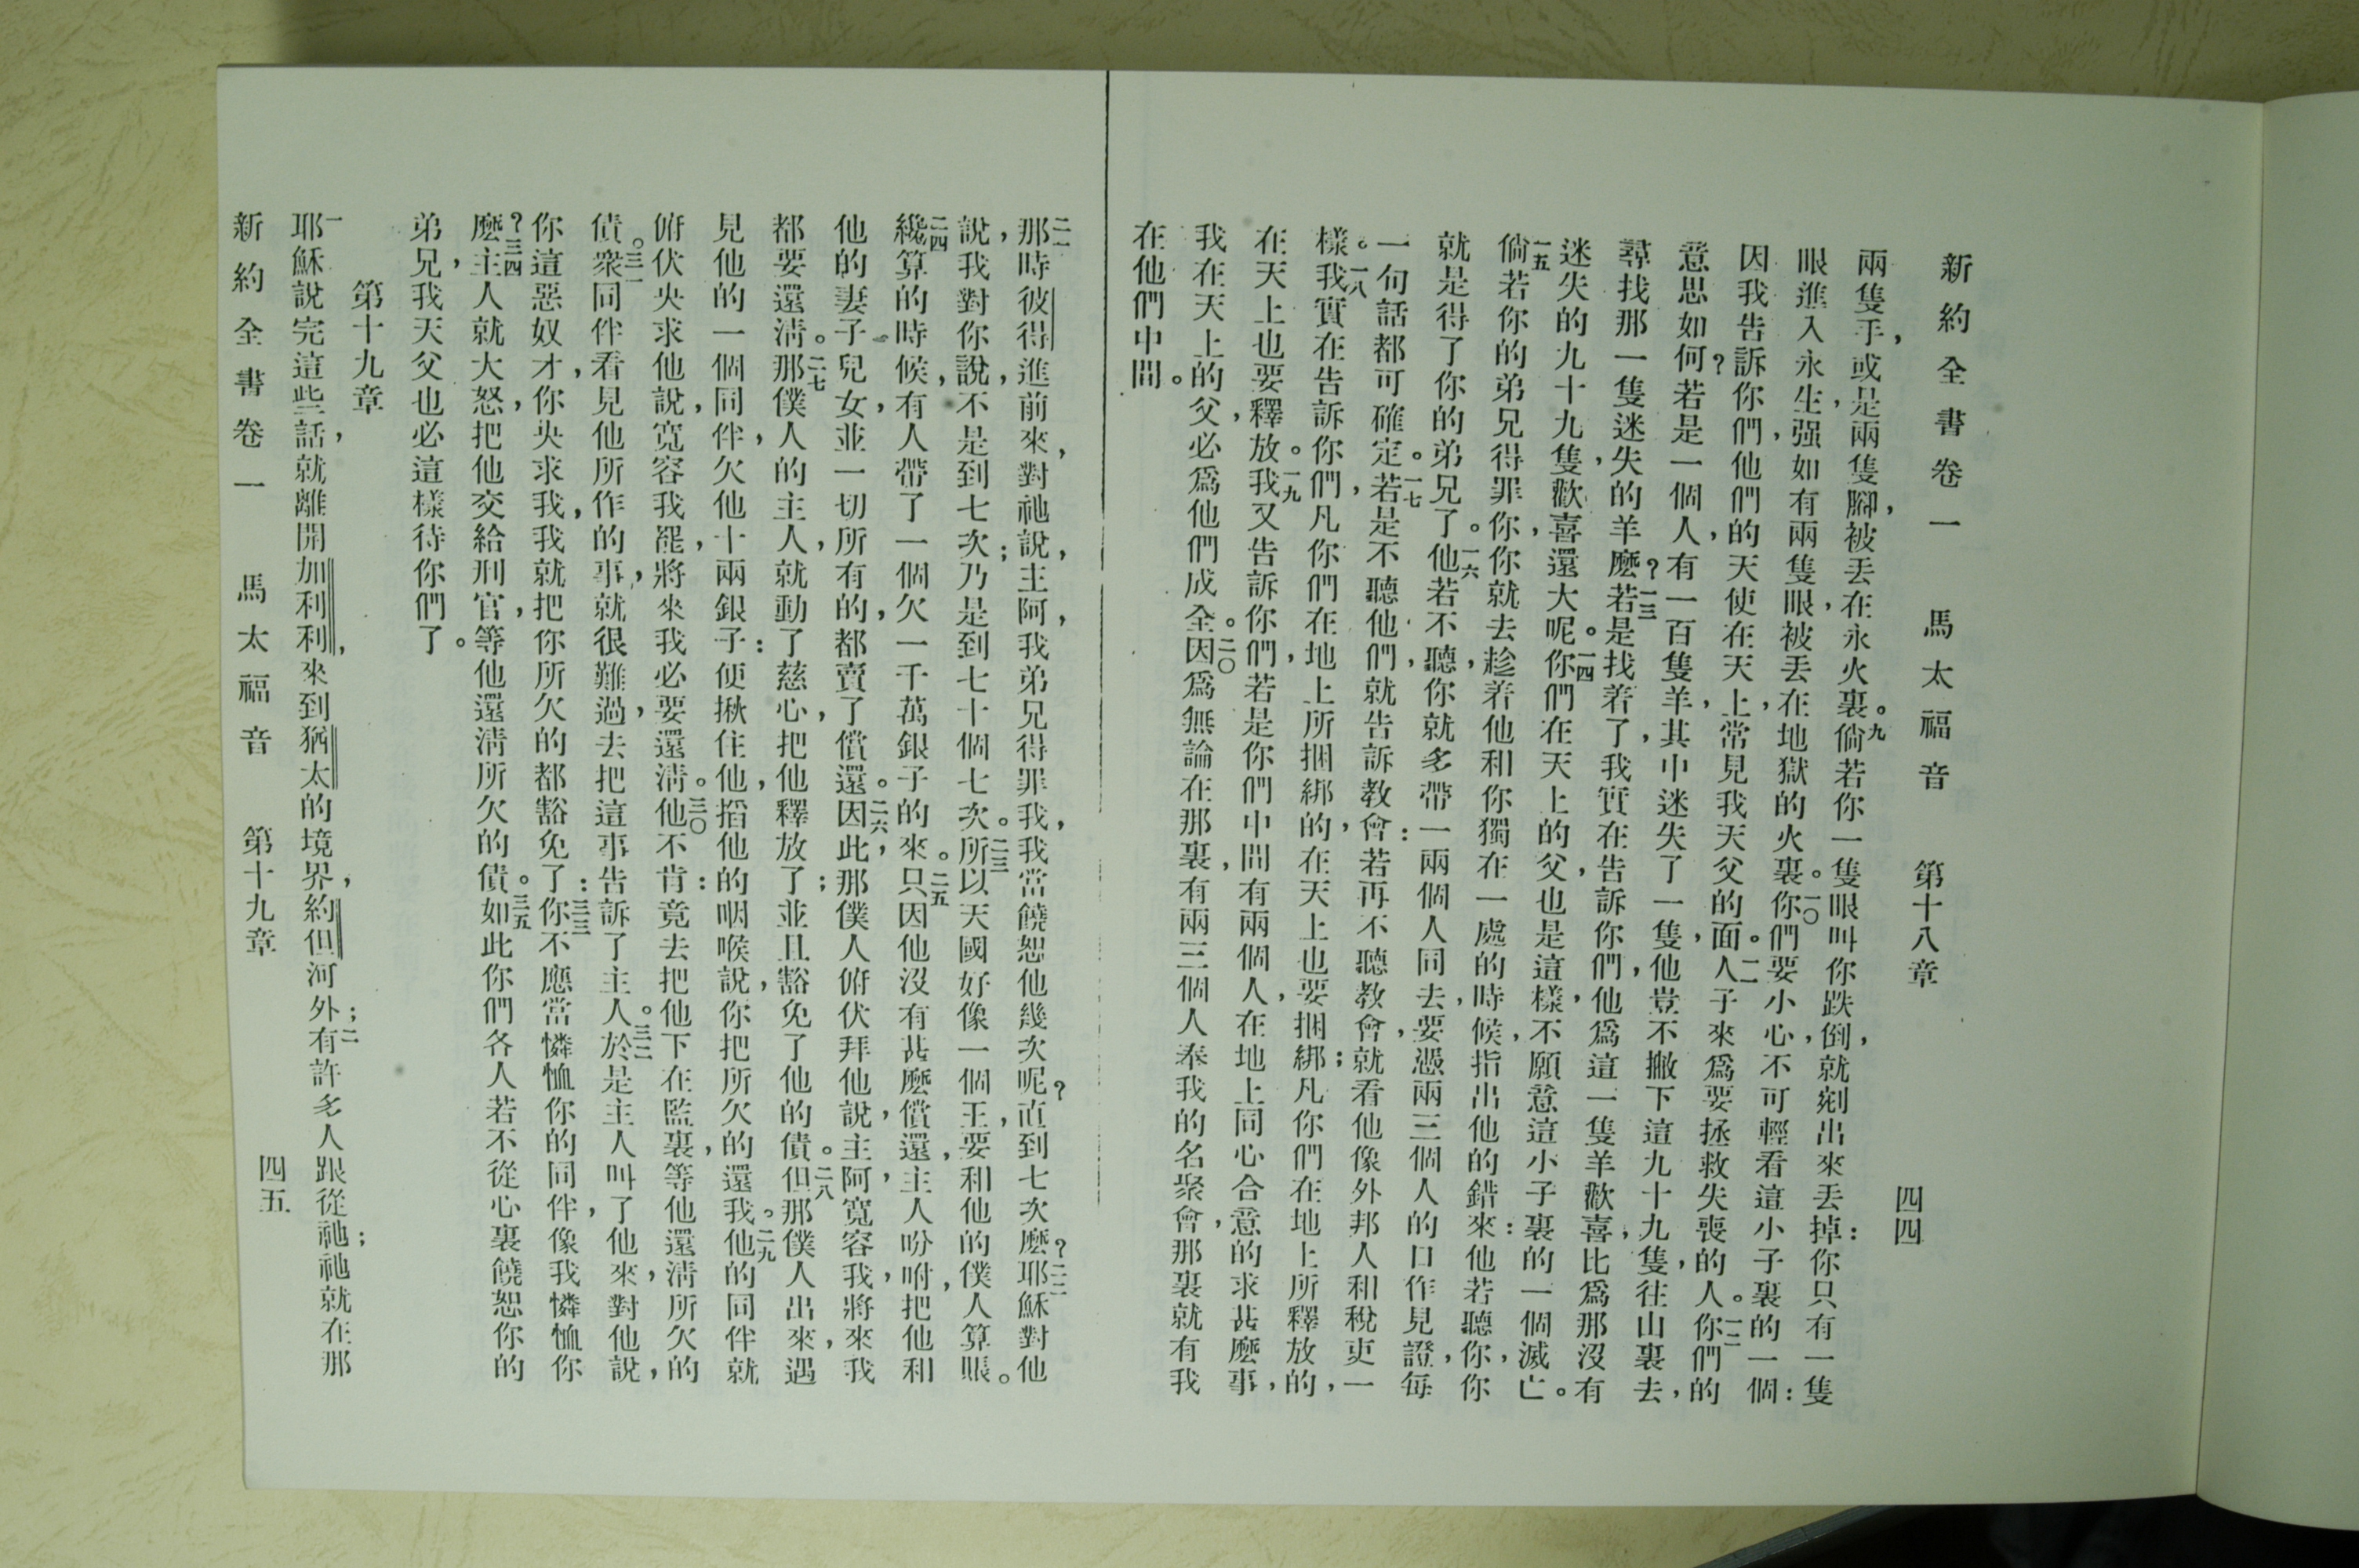 新約全書卷一 馬太福音 第十八章 四四
兩隻手，或是兩隻腳，被丟在永火裏。九倘若你一隻眼叫你跌倒，就剜出來丟掉：你只有一隻
眼進入永生，强如有兩隻眼，被丟在地獄的火裏。一〇你們要小心，不可輕看這小子裏的一個：
因我告訴你們，他們的天使在天上，常見我天父的面。一一人子來爲要拯救失喪的人。一二你們的
意思如何？若是一個人，有一百隻羊，其中迷失了一隻，他豈不撇下這九十九隻，往山裏去，
尋找那一隻迷失的羊麼？一三若是找着了，我實在告訴你們，他爲這一隻羊歡喜，比爲那沒有
迷失的九十九隻，歡喜還大呢。一四你們在天上的父，也是這樣，不願意這小子裏的一個滅亡。
一五倘若你的弟兄得罪你，你就去趁着他和你獨在一處的時候，指出他的錯來：他若聽你，你
就是得了你的弟兄了。一六他若不聽，你就多帶一兩個人同去，要憑兩三個人的口作見證，每
一句話都可確定。一七若是不聽他們，就告訴教會：若再不聽教會，就看他像外邦人和稅吏一
樣。一八我實在告訴你們，凡你們在地上所捆綁的，在天上也要捆綁；凡你們在地上所釋放的，
在天上也要釋放。一九我又告訴你們，若是你們中間有兩個人，在地上同心合意的求甚麼事，
我在天上的父，必爲他們成全。二〇因爲無論在那裏，有兩三個人奉我的名聚會，那裏就有我
在他們中間。
二一那時彼得進前來，對祂說，主阿，我弟兄得罪我，我當饒恕他幾次呢？直到七次麼？二二耶穌對他
說，我對你說，不是到七次；乃是到七十個七次。二三所以天國好像一個王，要和他的僕人算賬。
二四纔算的時候，有人帶了一個欠一千萬銀子的來。二五只因他沒有甚麼償還，主人吩咐，把他和
他的妻子。兒女，並一切所有的，都賣了償還。二六因此，那僕人俯伏拜他說，主阿，寬容我，將來我
都要還淸。二七那僕人的主人，就動了慈心，把他釋放了；並且豁免了他的債。二八但那僕人出來，遇
見他的一個同伴，欠他十兩銀子：便揪住他，掐他的咽喉說，你把所欠的還我。二九他的同伴就
俯伏央求他說，寬容我罷，將來我必要還淸。三〇他不肯：竟去把他下在監裏，等他還淸所欠的
債。三一衆同伴看見他所作的事，就很難過，去把這事告訴了主人。三二於是主人叫了他來，對他說，
你這惡奴才，你央求我，我就把你所欠的都豁免了：三三你不應當憐恤你的同伴，像我憐恤你
麼？三四主人就大怒，把他交給刑官，等他還淸所欠的債。三五如此你們各人若不從心裏饒恕你的
弟兄，我天父也必這樣待你們了。
第十九章
一耶穌說完這些話，就離開加利利，來到猶太的境界，約但河外；二有許多人跟從祂；祂就在那
新約全書卷一 馬太福音 第十九章 四五